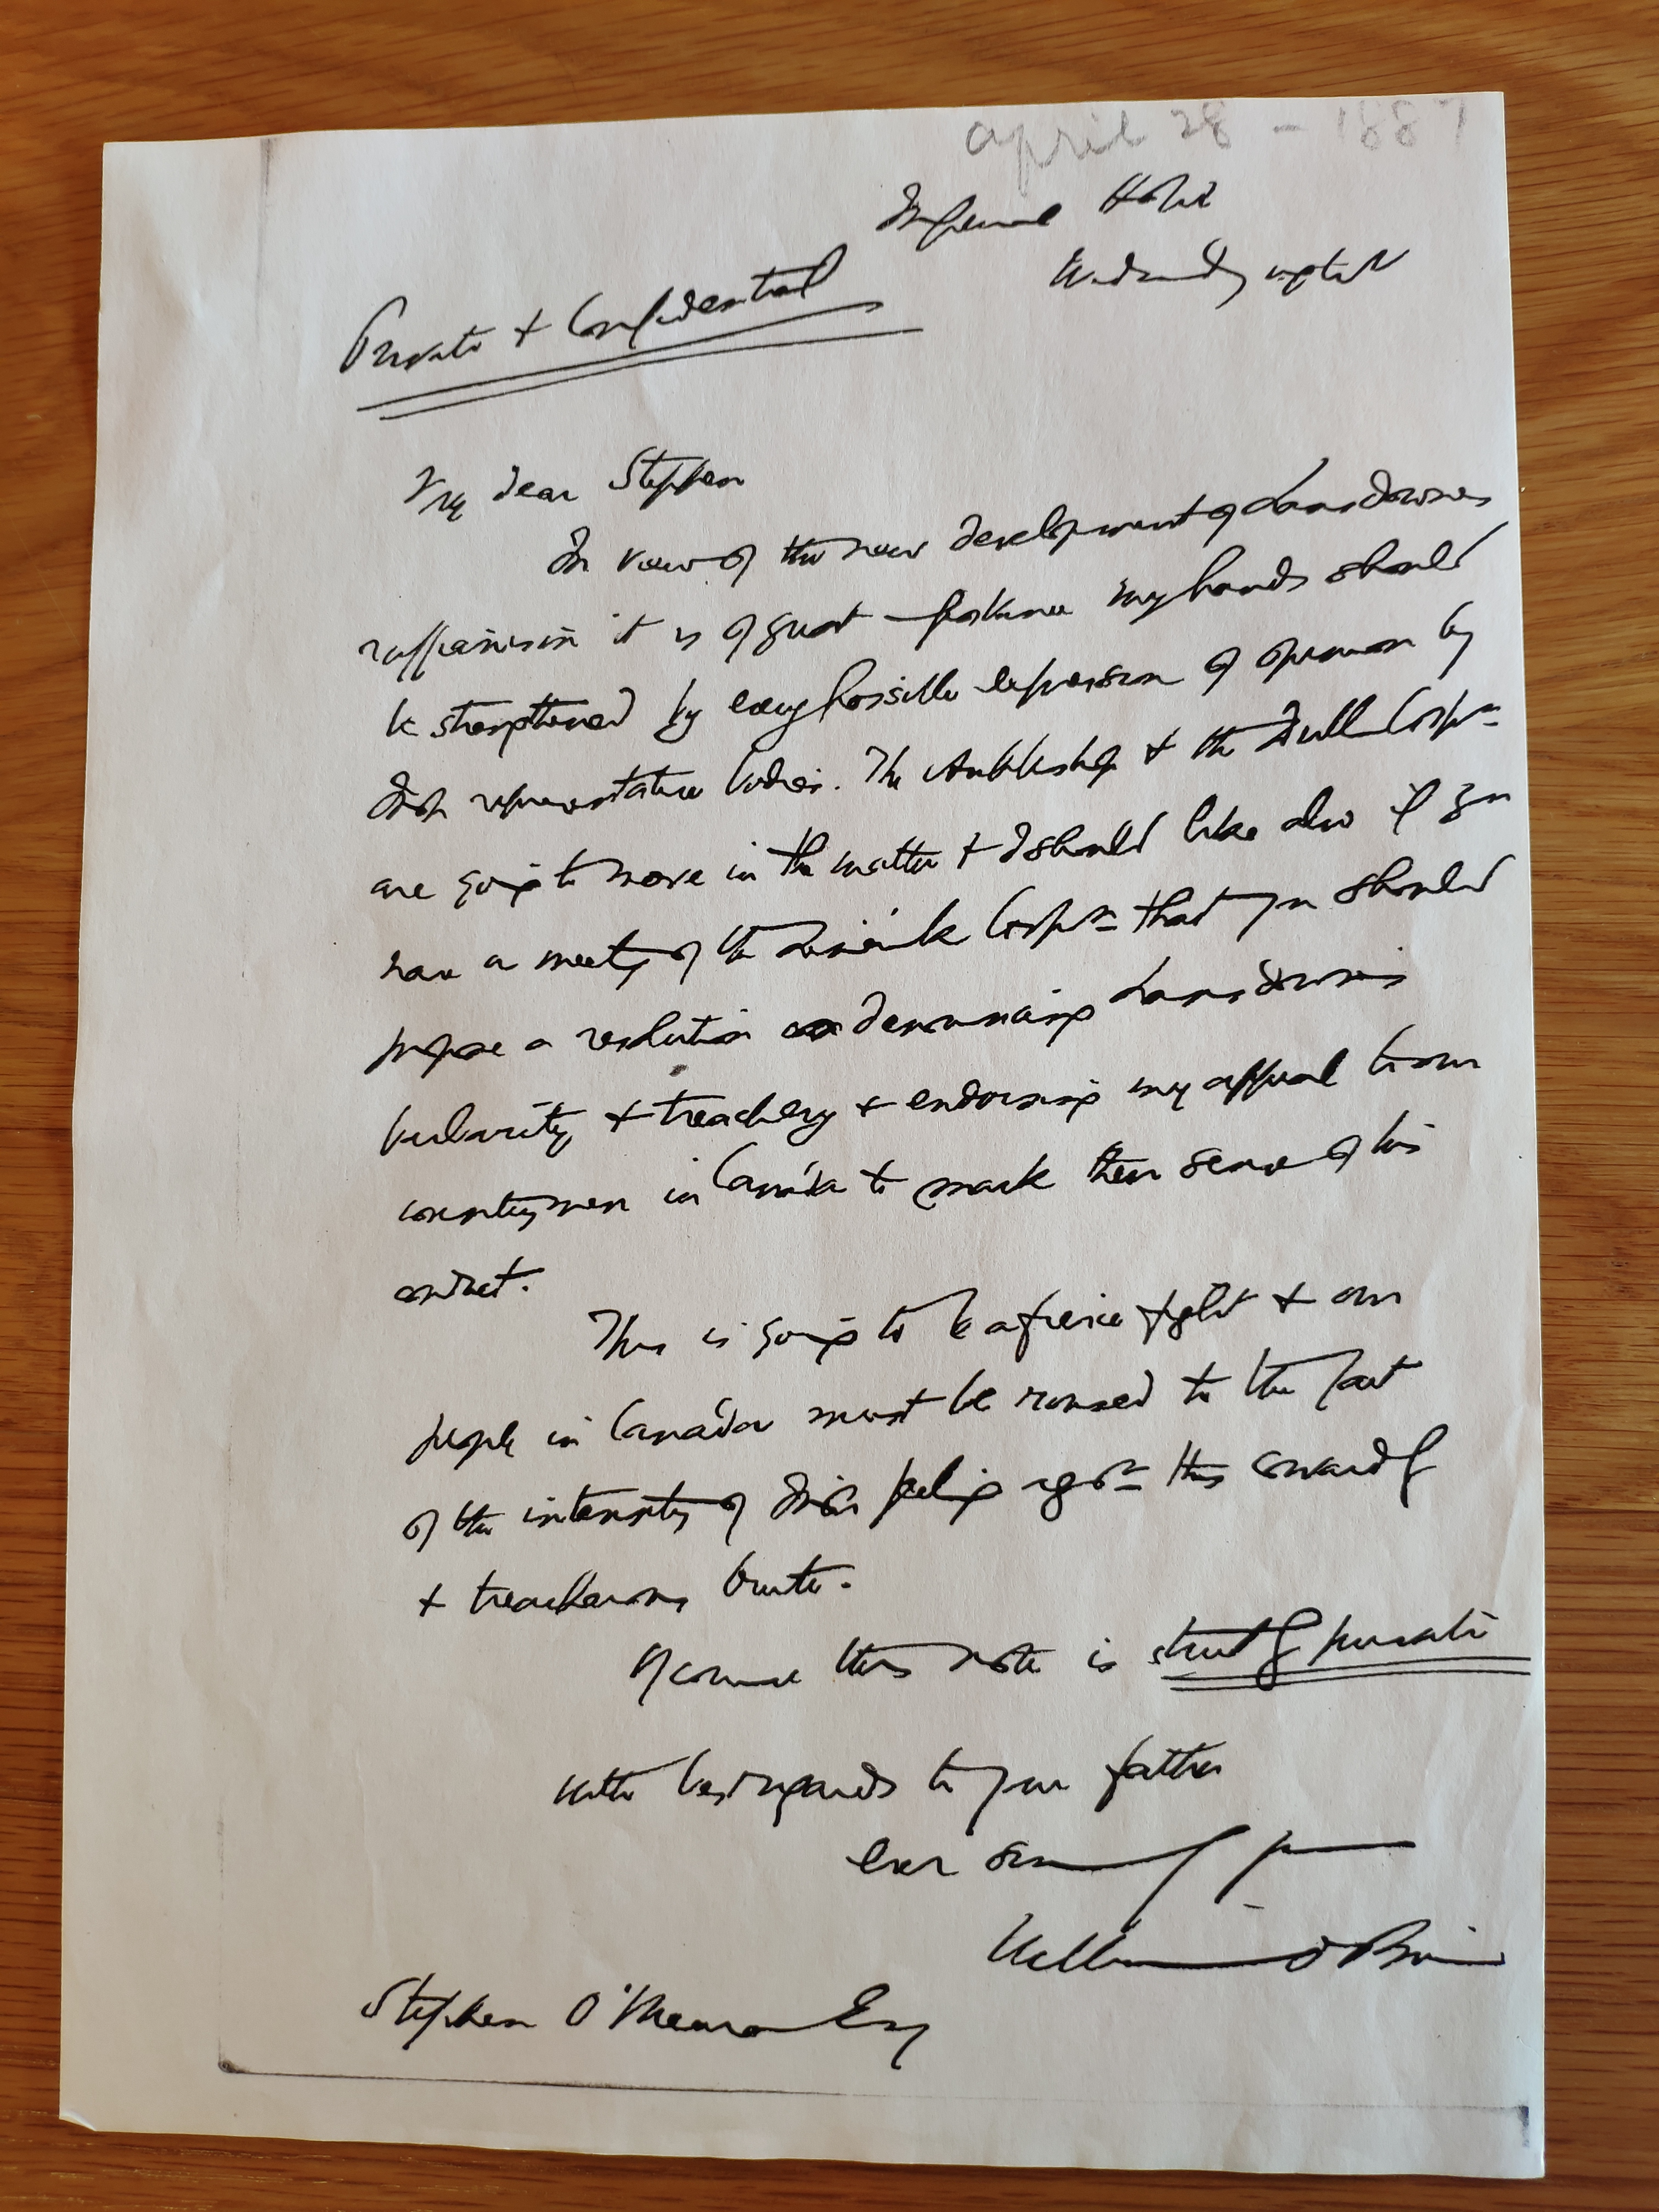 april 28 - 1887
Imperial Hotel
Wednesday night
Private & Confidential
My dear Stephen
In view of the new development of Lansdownes
ruffianism it is of great  my hands should
be strengthened by every possible expression of opinion by
Irish representative bodies. The Archbishop & the Dublin Corpn
are going to move in the matter & I should like also if you
have a meetg of the Limerick Corpn that you should
propose a resolution denouncing Lansdownes
barbarity & treachery & endorsing my appeal to our
countrymen in Canada to mark their sense of his
conduct.
This is going to be a fierce fight & our
people in Canada must be roused to the fact
of the intensity of Irish feeling agst this cowardly
& treacherous brute.
Of course this note is strictly private
With best regards to your father
Ever sincerely yours
William O'Brien
Stephen O'Meara Esq